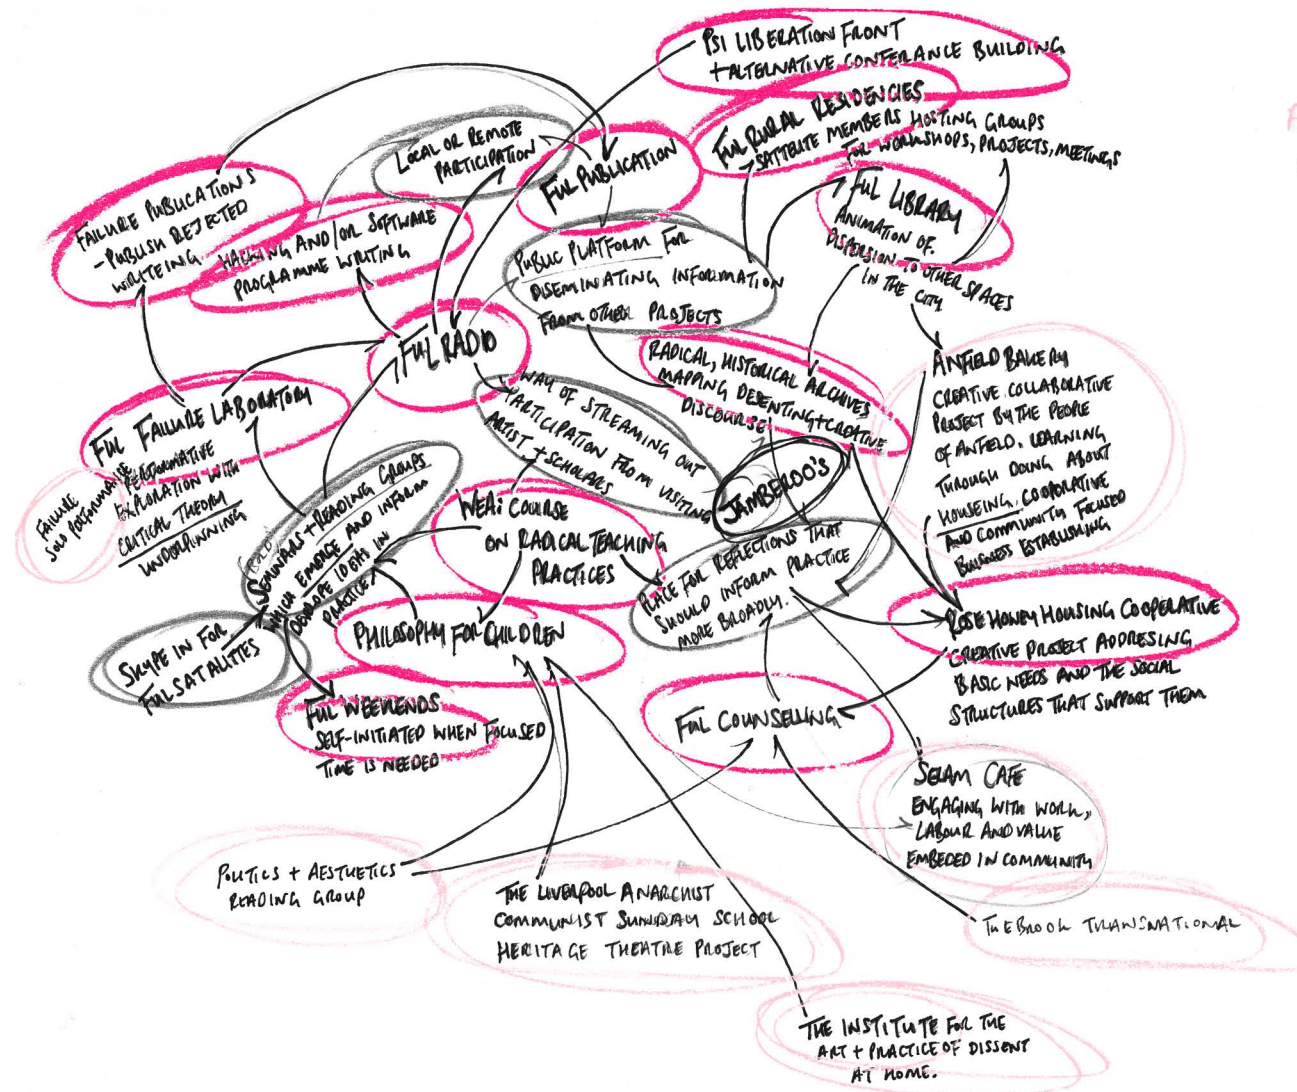 PSI LIBERATION FRONT
+ ALTERNATIVE CONFERANCE BUILDING
FUL RURAL RESIDENCIES
SATTELITE MEMBERS HOSTING GROUPS
FOR WORKSHOPS, PROJECTS, MEETINGS
LOCAL OR REMOTE
PARTICIPATION
FUL PUBLICATION
FUL LIBRARY
ANIMATION OF
DISPERSION TO OTHER SPACES
IN THE CITY
FAILURE PUBLICATIONS
- PUBLISH REJECTED
WRITEING
HACKING AND/OR SOFTWARE
PROGRAMME WRITING
PUBLIC PLATFORM FOR
DISEMINATING INFORMATION
FROM OTHER PROJECTS
FUL RADIO
RADICAL, HISTORICAL ARCHIVES
MAPPING DESENTING + CREATIVE
DISCOURSE
ANFIELD BAKERY
CREATIVE COLLABORATIVE
PROJECT BY THE PEOPLE
OF ANFIELD. LEARNING
THROUGH DOING ABOUT
HOUSEING. COOPERATIVE
AND COMMUNITY FOCUSED
BUSINESS ESTABLISHING
FUL FAILURE LABORATORY
PERFORMATIVE
EXPLORATION WITH
CRITICAL THEORY
UNDERPINNING
FAILURE
SOLO PERFORMANCE
WAY OF STREAMING OUT
PARTICIPATION FROM VISITING
ARTIST + SCHOLARS
JAMBEROO'S
SEMINARS + READING GROUPS
WHICH EMERGE AND INFORM
DEVELOPE IDEAS IN
PRACTICE
WEA: COURSE
ON RADICAL TEACHING
PRACTICES
PLACE FOR REFLECTIONS THAT
SHOULD INFORM PRACTICE
MORE BROADLY.
SKYPE IN FOR
FUL SATALITTES
PHILOSOPHY FOR CHILDREN
ROSE HONEY HOUSING COOPERATIVE
CREATIVE PROJECT ADDRESING
BASIC NEEDS AND THE SOCIAL
STRUCTURES THAT SUPPORT THEM
FUL WEEKENDS
SELF-INITIATED WHEN FOCUSED
TIME IS NEEDED
FUL COUNSELLING
SELAM CAFE
ENGAGING WITH WORK,
LABOUR AND VALUE
EMBEDED IN COMMUNITY
POLITICS + AESTHETICS
READING GROUP
THE LIVERPOOL ANARCHIST
COMMUNIST SUNDAY SCHOOL
HERITAGE THEATRE PROJECT
THE BROOK TRANSNATIONAL
THE INSTITUTE FOR THE
ART + PRACTICE OF DISSENT
AT HOME.